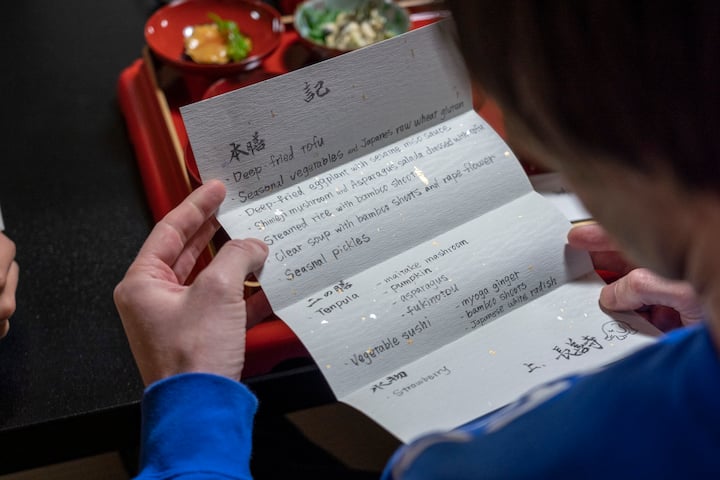 記
本膳
· Deep-fried tofu
· Seasonal vegetables and Japanes raw wheat gluten
· Deep-fried eggplant with sesame miso sauce
· Shimeji mushroom and Asparagus salada dressed with tofu
· Steamed rice with bamboo shoots
· Clear soup with bamboo shoots and rape-flower
· Seasnal pickles
二の膳
Tenpula - maitake mashroom
- pumpkin
- asparagus
- fukinotou
· Vegetable sushi - myoga ginger
- bamboo shoots
- Japanese white radish
水物
· Strawberry
上 長善寺